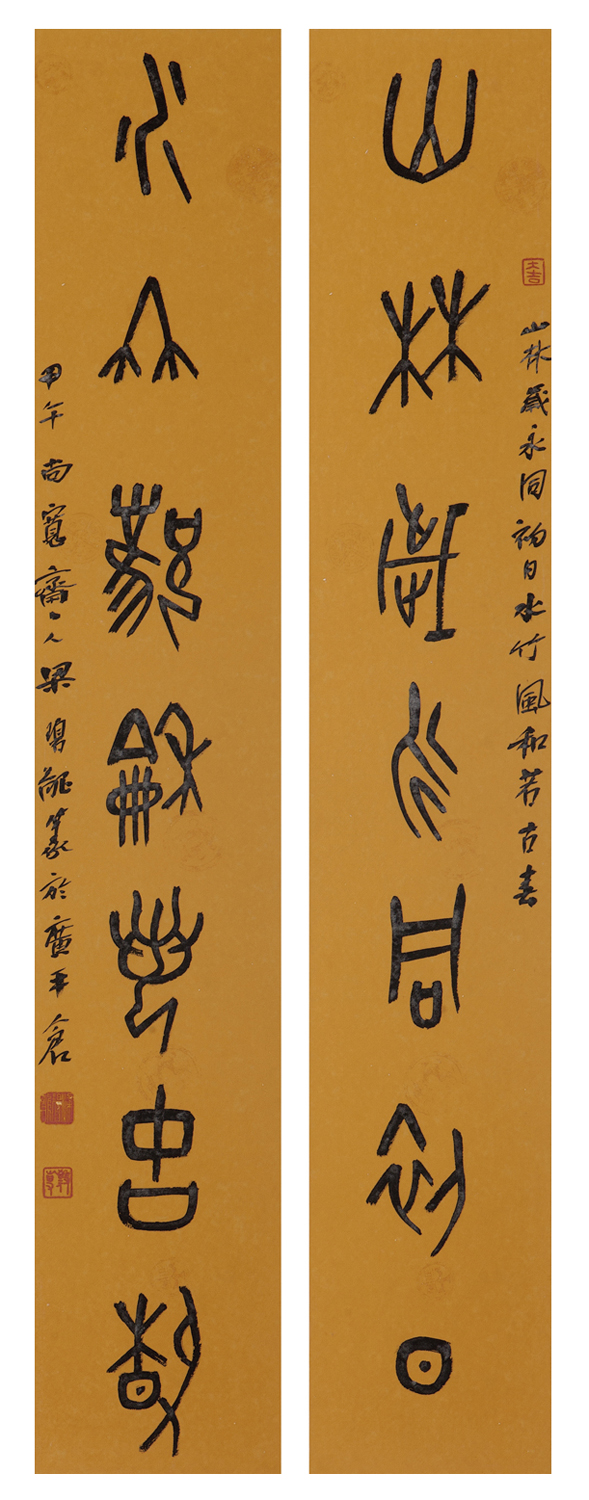 山林歲永同初日
山林歲永同初日水竹風和若古春
水竹風和若古春
甲午尚寬齋人梁碧 篆於廣平倉
大吉